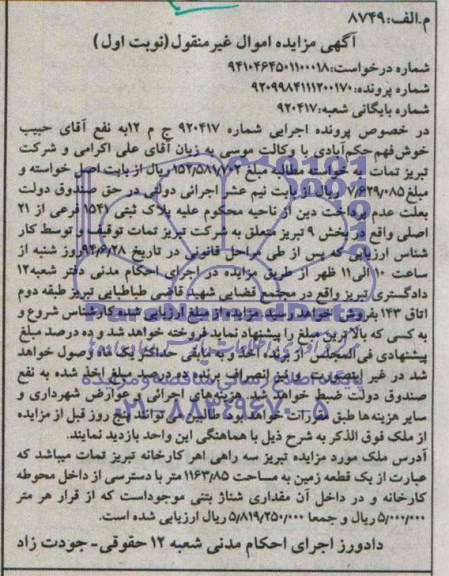 م.الف: ۸۷۴۹
آگهی مزایده اموال غیرمنقول (نوبت اول)
شماره درخواست: ۹۴۱۰۴۶۴۵۰۱۱۰۰۰۱۸
شماره پرونده: ۹۲۰۹۹۸۴۱۱۱۲۰۰۱۷۰
شماره بایگانی شعبه: ۹۲۰۴۱۷
در خصوص پرونده اجرایی شماره ۹۲۰۴۱۷ ج م ۱۲به نفع آقای حبیب
خوش‌فهم حکم‌آبادی با وکالت موسی به زبان آقای علی اکرامی و شرکت
تبریز تمات به خواسته مطالبه مبلغ ۱۵۲/۵۸۱/۷۰۳ ریال از بابت اصل خواسته و
مبلغ ۷/۶۲۹/۰۸۵ ریال از بابت نیم عشر اجرائی دولتی در حق صندوق دولت
بعلت عدم پرداخت دین از ناحیه محکوم علیه پلاک ثبتی ۱۵۴۷ فرعی از ۲۱
اصلی واقع در بخش ۹ تبریز متعلق به شرکت تبریز تمات توقیف و توسط کار
شناس ارزیابی که پس از طی مراحل قانونی در تاریخ ۹۴/۶/۲۸روز شنبه از
ساعت ۱۰ الی۱۱ ظهر از طریق مزایده در اجرای احکام مدنی دفتر شعبه۱۲
دادگستری تبریز واقع در مجتمع قضایی شهید قاضی طباطبایی تبریز طبقه دوم
اتاق ۱۴۳ بفروش خواهد رسید مزایده از مبلغ ارزیابی شده کارشناس شروع و
به کسی که بالاترین مبلغ را پیشنهاد نماید فروخته خواهد شد و ده درصد مبلغ
پیشنهادی فی‌المجلس از برنده اخذ و به مابقی حداکثر یک ماه وصول خواهد
شد در غیر اینصورت و نیز انصراف برنده ده درصد مبلغ اخذ شده به نفع
صندوق دولت ضبط خواهد شد. هزینه‌های اجرائی و عوارض شهرداری و
سایر هزینه‌ها طبق مقررات خواهد بود طالبین می‌توانند پنج روز قبل از مزایده
از ملک فوق الذکر به شرح ذیل با هماهنگی این واحد بازدید نمایند.
آدرس ملک مورد مزایده تبریز سه راهی اهر کارخانه تبریز تمات میباشد که
عبارت از یک قطعه زمین به مساحت ۱۱۶۳/۸۵ متر با دسترسی از داخل محوطه
کارخانه و در داخل آن مقداری شناژ بتنی موجوداست که از قرار هر متر
۵/۰۰۰/۰۰۰ ریال و جمعا ۵/۸۱۹/۲۵۰/۰۰۰ ریال ارزیابی شده است.
دادورز اجرای احکام مدنی شعبه ۱۲ حقوقی- جودت زاد
پایگاه اطلاع رسانی مناقصه و مزایده
۰۲۱-۸۸۳۴۹۶۷۰-۵